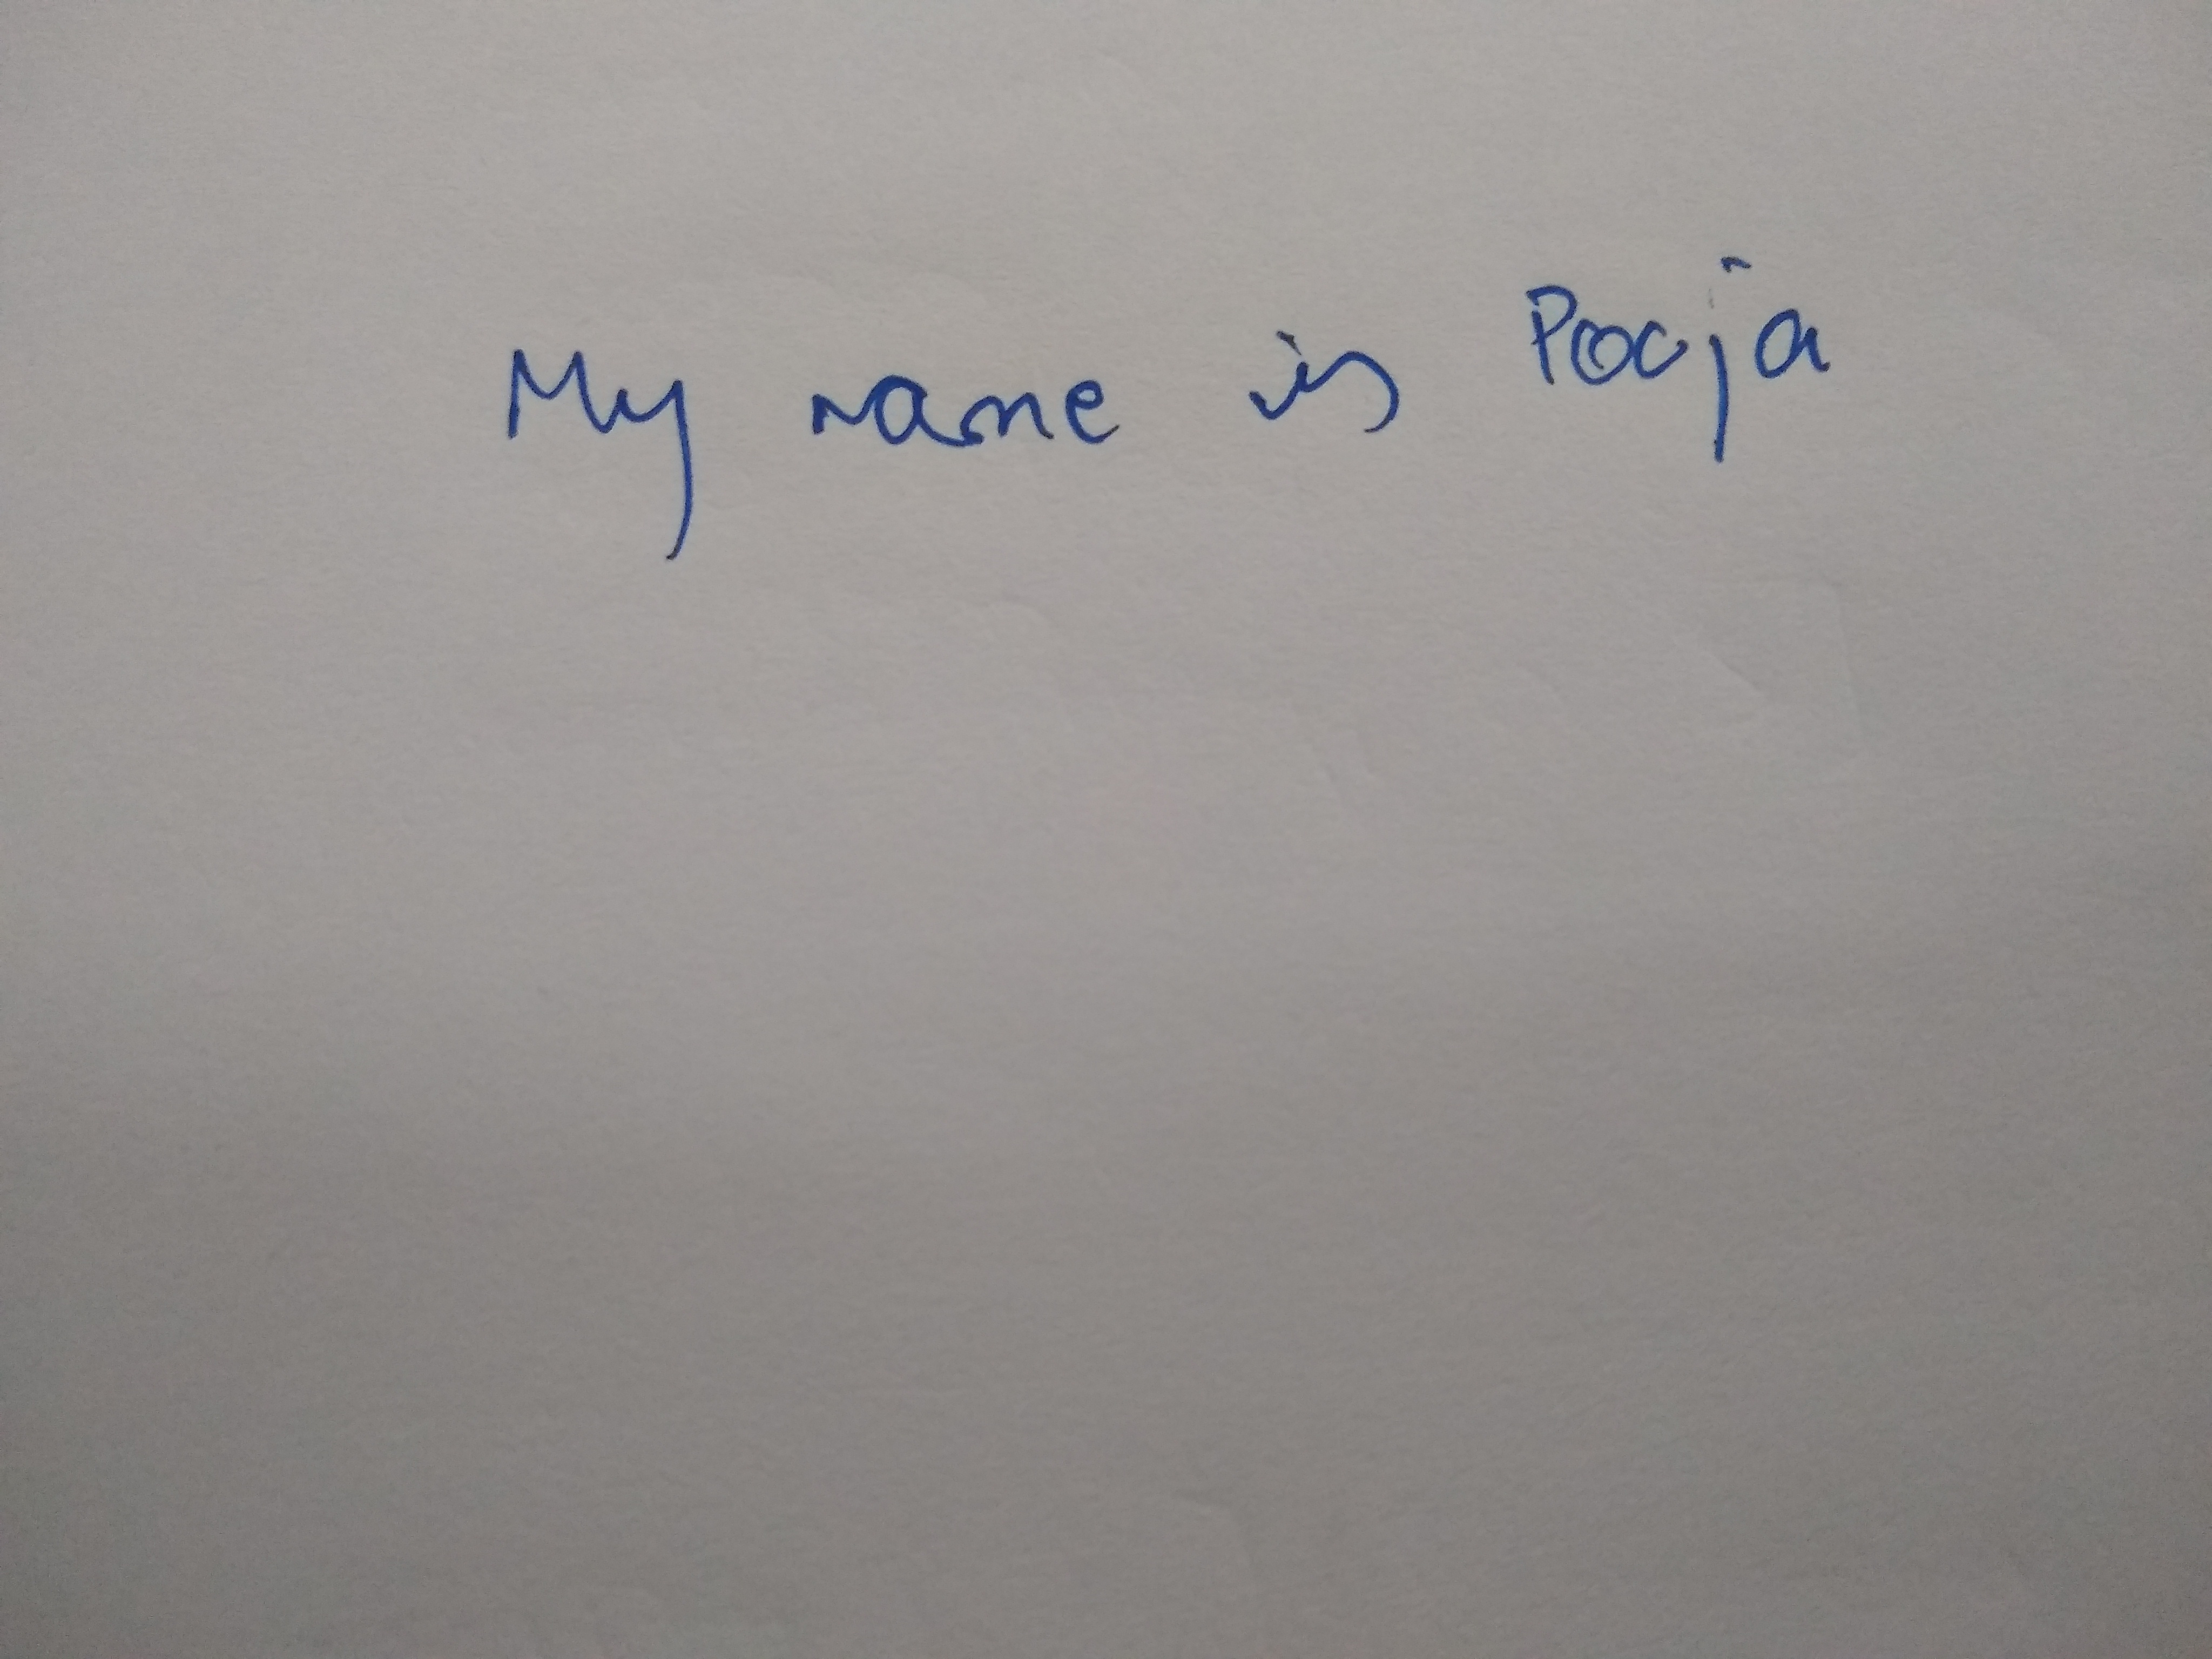 My name is Pooja